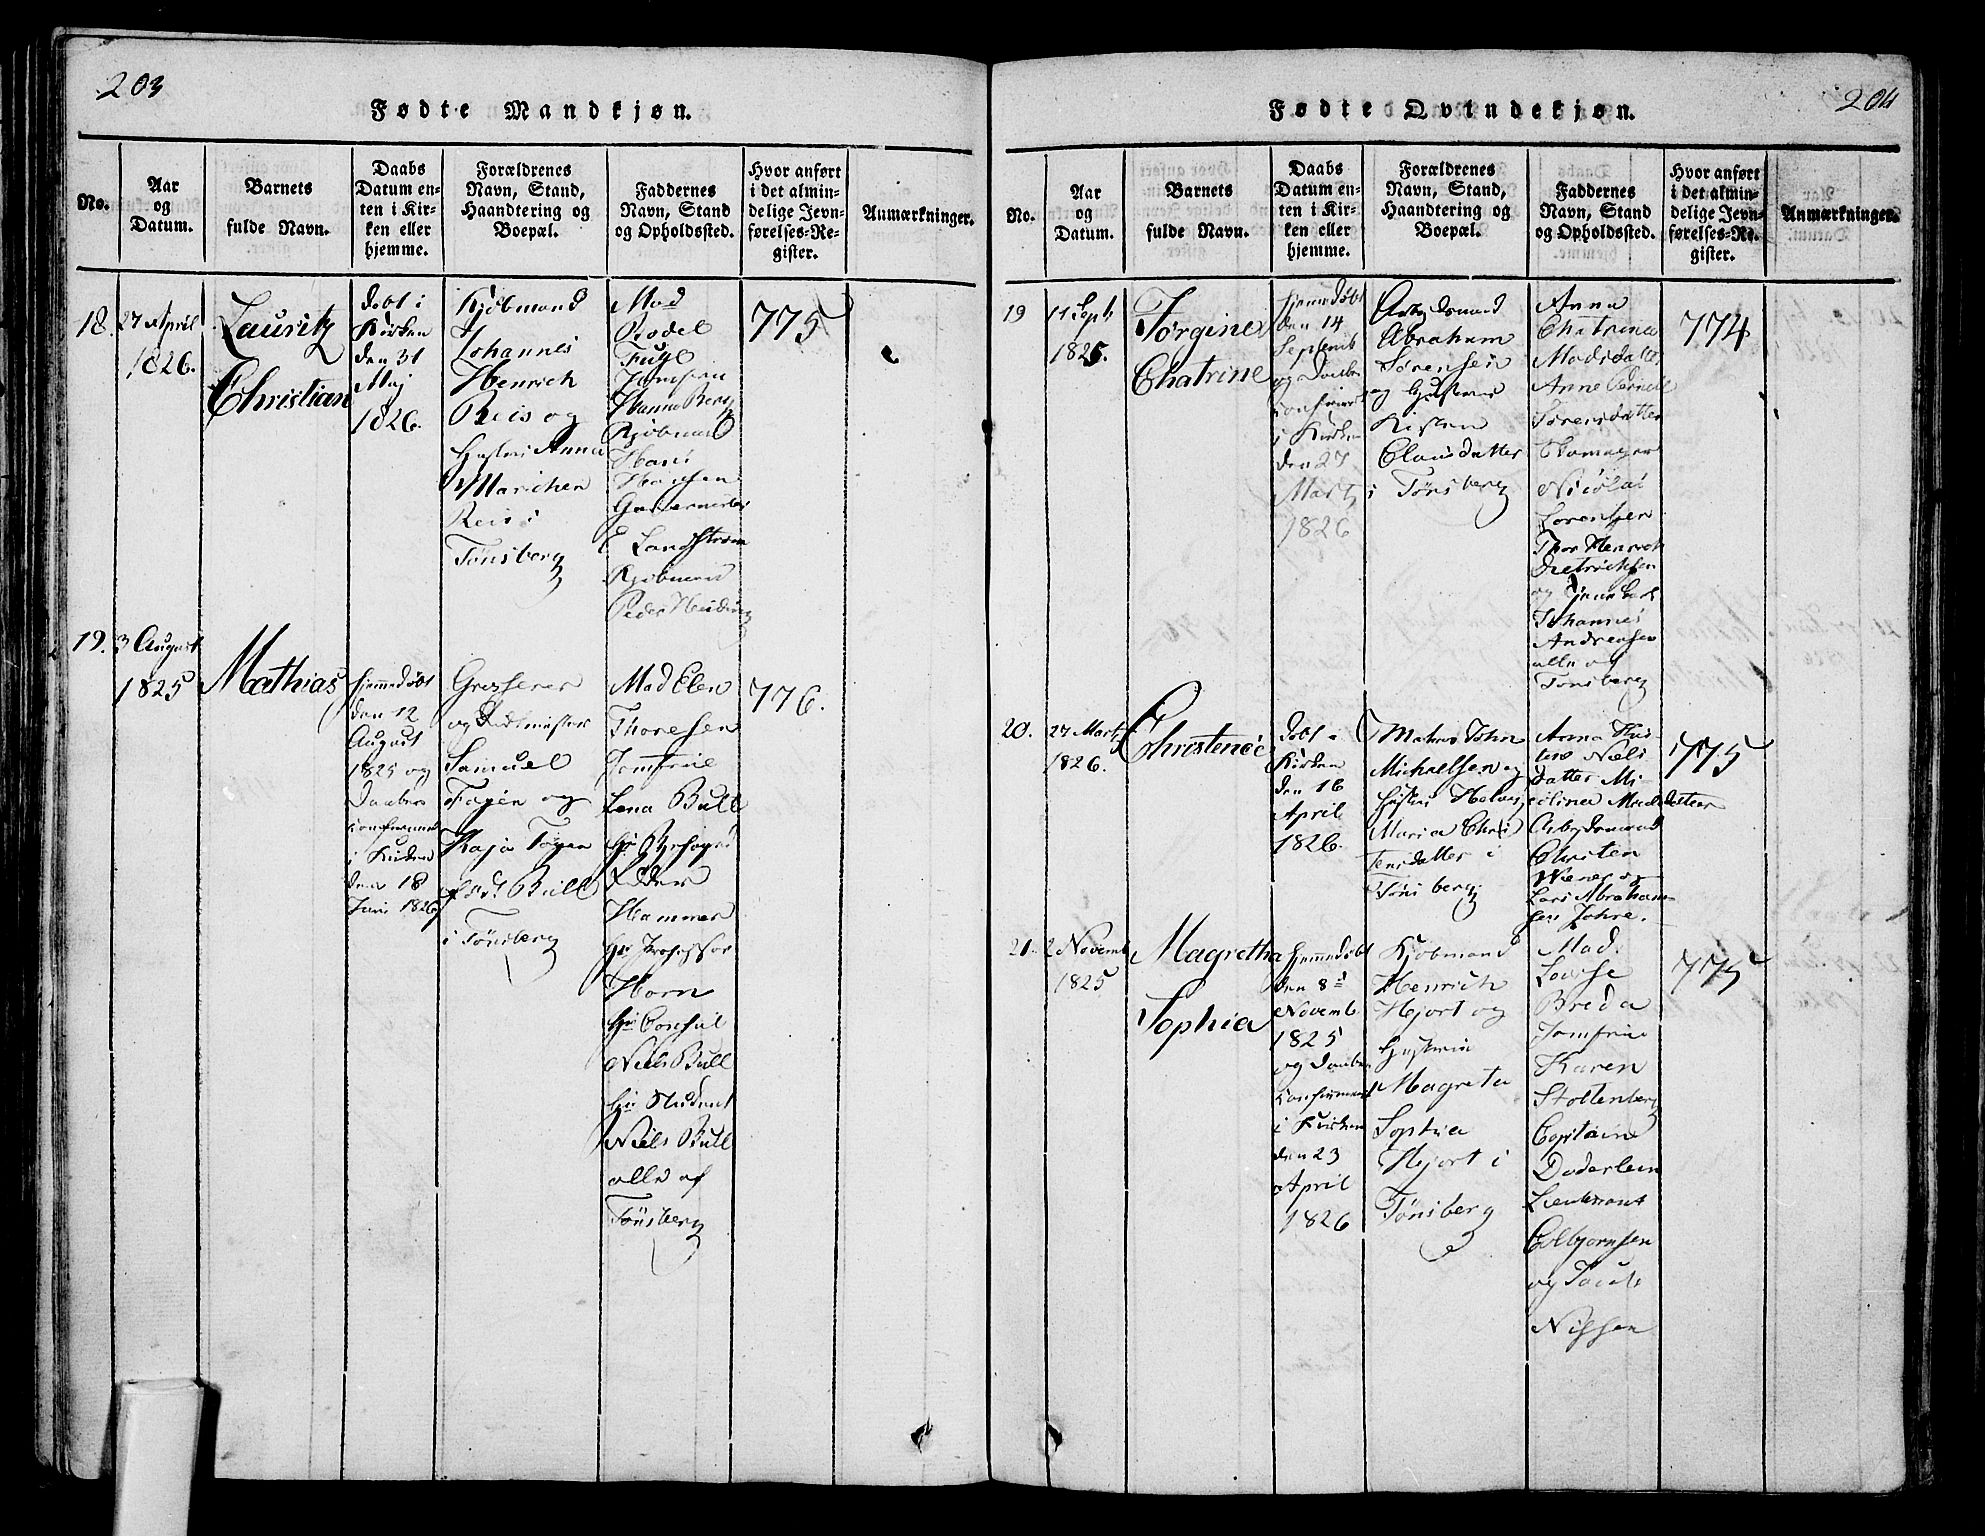 203
Fødte Mandkjøn.
No.
Aar
og
Datum.
Barnets
fulde Navn.
Daabs
Datum en-
ten i Kir-
ken eller
hjemme.
Forældrenes
Navn, Stand,
Haandtering og
Boepæl.
Faddernes
Navn, Stand
og Opholdssted.
Hvor anført
i det almin-
delige Jevn-
førelses-Re-
gister.
Anmærkninger.
18.
27 April
1826.
Lauritz
Christian
døbt i
Kirken
den 31
Maj
1826.
Kjøbmand
Johannes
Henrich
Reis og
Hustru Anna
Marichen
Reis i
Tønsberg
Mad
Bodel
Fuyl
Jomfrue
Hanna Berg
Kjøbmand
Hans
Hansen
E Landstrøm
Kjøbmand
Peder
775
19.
3 August
1825
Mathias
hjemmedøbt
den 12
August
1825 og
Daaben
confirmeret
i Kirken
den 18
Juni 1826
Grosserer
og
Samuel
Føyen og
Kaja Føyen
født Bull
i Tønsberg
Mad Elen
Thoresen
Jomfrue
Lena Bull
Hr Byfoget
Ridder
Hammer
Hr Professor
Horn
Hr Consul
Niels Bull
Hr Student
Niels Bull
alle af
Tønsberg
776.
204
Fødte Qvindekjøn.
No.
Aar
og
Datum.
Barnets
fulde Navn.
Daabs
Datum en-
ten i Kir-
ken eller
hjemme.
Forældrenes
Navn, Stand,
Haandtering og
Boepæl.
Faddernes
Navn, Stand
og Opholdssted.
Hvor anført
i det almin-
delige Jevn-
førelses-Re-
gister.
Anmærkninger.
19
11 Sept
1825.
Jørgine
Chatrine
hjemmedøbt
den 14
Septemb
og Daaben
confirmert
i Kirken
den 27
Martz
1826
Arbejdsmand
Abraham
Sørensen
og Hustrue
Kisten
Clausdatter
i Tønsberg
Anna
Chatrine
Madsdatter
Anne
Sørensdatter
Skomager
Nicolai
Lorentzen
Thor Henrich
Dietrichsen
og
Johannes
Andreasen
alle og
Tønsberg
774
20.
27 Martz
1826.
Christence
døbt i
Kirken
den 16
April
1826.
Matros John
Michaelsen og
Hustru Helvig
Maria Chris
tensdatter i
Tønsberg
Anna Kir-
Niels
datter Mi
Madsdatter
Arbejdsmand
Christen
og
Lars Abraham-
sen Johre.
775
21.
2 Novemb
1825
Magretha
Sophia
hjemmedøbt
den 8de
Novemb
1825
og Daaben
confirmert
i Kirken
den 23
April
1826
Kjøbmand
Henrich
Hjort og
Hustrue
Magreta
Sophia
Hjort i
Tønsberg
Mad.
Lovise
Breda
Jomfrue
Karen
Stoltenberg
Capitain
Døderlein
Lieutenant
Colbjørnsen
og Jacob
Nissen
775